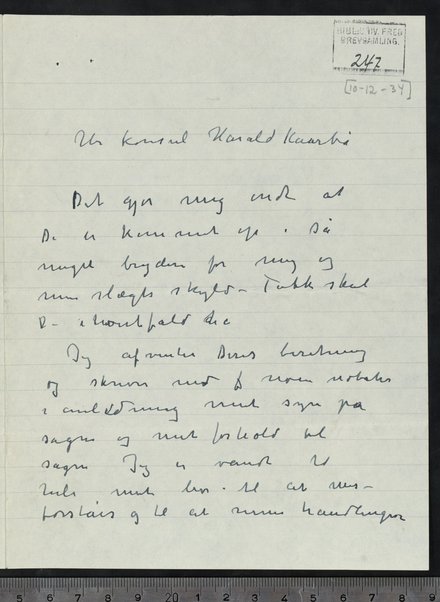 BIBLIOT. V. FRED
BREVSAMLING.
242
[10-12-34]
Hr Konsul Harald Kaarbø
Det gjør mig ondt at
De er kommet op i så
meget bryderi for mig og
min slægts skyld – Takk skal
De i hvertfald ha
Jeg afventer Deres beretning
og skriver ned noen notater
i anledning mit syn på
sagen og mit forhold til
sagen Jeg er vandt til
hele mit liv til at mis–
forstås og til at mine handlinger